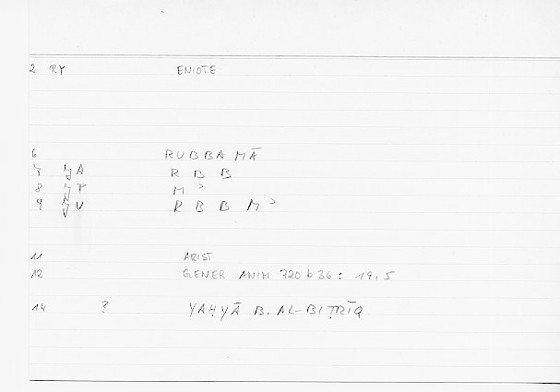 2 RY ENIOTE
6 RUBBAMĀ
7 A R B B
8 P M ʾ
9 U R B B M ʾ
11 ARIST
12 GENER ANIM 720 b 36 : 19,5
14 ? YAḤYĀ B. AL-BIṬRĪQ